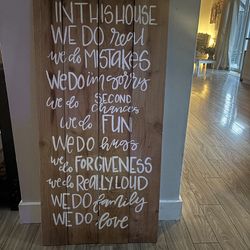 IN THIS HOUSE
WE DO real
we do MISTAKES
WE DO im sorry
we do SECOND chances
we do FUN
WE DO hugs
we do FORGIVENESS
we do REALLY LOUD
WE DO family
WE DO love